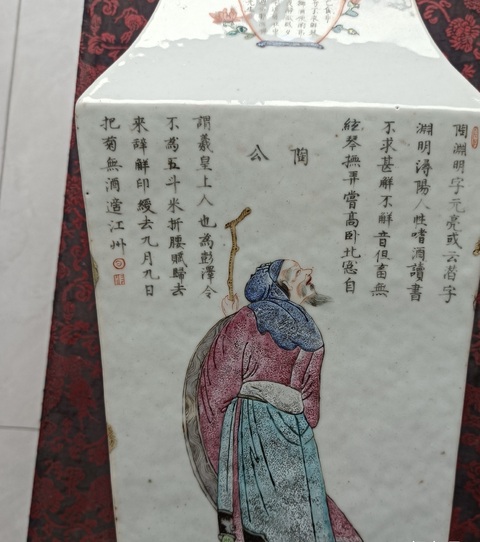 陶淵明字元亮或云潛字
淵明潯陽人性嗜酒讀書
不求甚觧不觧音但畜無
絃琴撫弄嘗高卧北窓自
陶公
謂羲皇上人也為彭澤令
不為五斗米折腰賦歸去
來辭觧印綬去九月九日
把菊無酒適江州